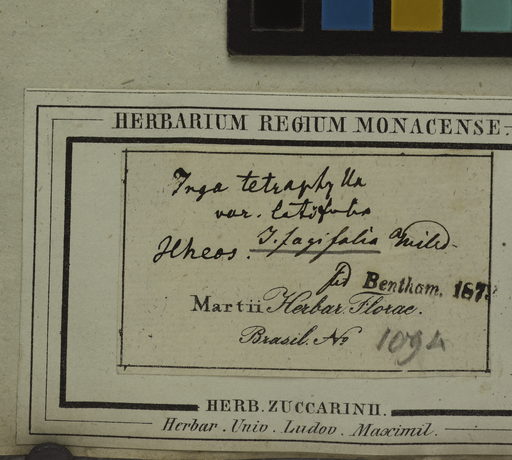 HERBARIUM REGIUM MONACENSE.
Inga tetraphylla
var. latifolia
Ilheos. I. fagifolia Willd.
fid Bentham. 187
Martii Herbar. Florae.
Brasil. No 1094
HERB. ZUCCARINII.
Herbar. Univ. Ludov. Maximil.